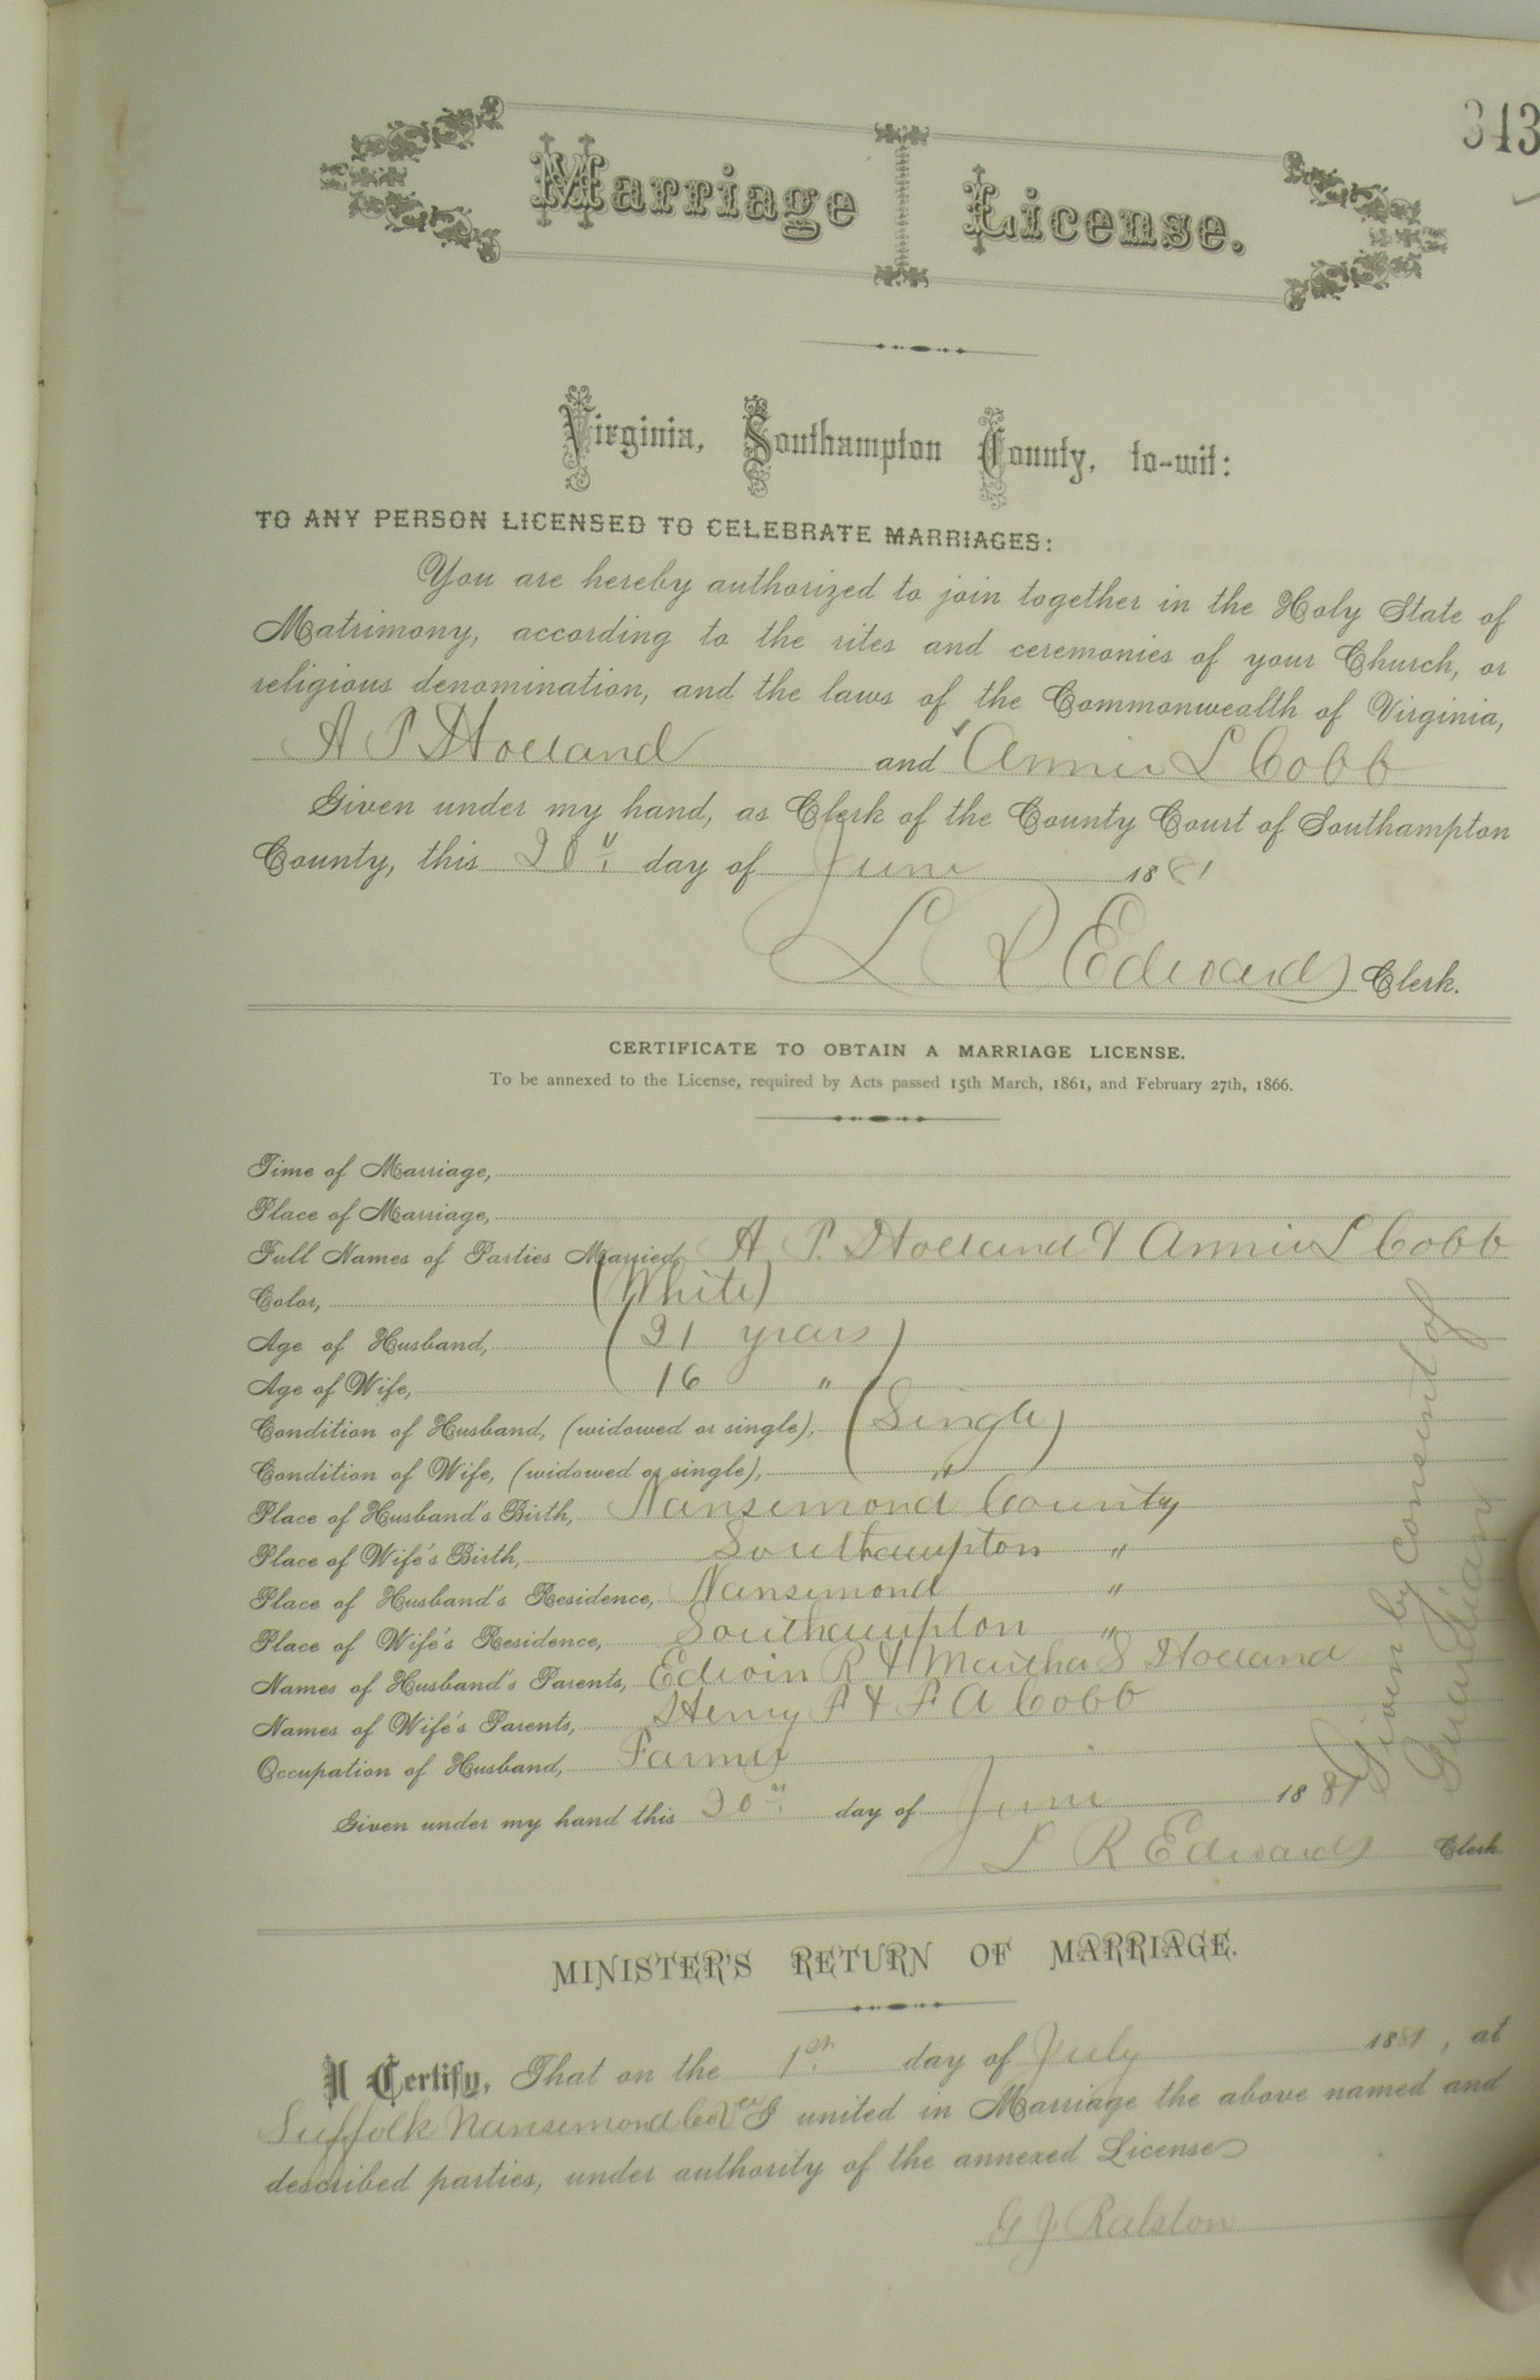 343
Marriage License.
Virginia, Southampton County, to-wit:
TO ANY PERSON LICENSED TO CELEBRATE MARRIAGES:
You are hereby authorized to join together in the Holy State of
Matrimony, according to the rites and ceremonies of your Church, or
religious denomination, and the laws of the Commonwealth of Virginia,
A P Holland and Annie L Cobb
Given under my hand, as Clerk of the County Court of Southampton
County, this day of June 1881
L R Edwards Clerk.
CERTIFICATE TO OBTAIN A MARRIAGE LICENSE.
To be annexed to the License, required by Acts passed 15th March, 1861, and February 27th, 1866.
Time of Marriage,
Place of Marriage,
Full Names of Parties Married, A. P. Holland & Annie L Cobb
Color, (White)
Age of Husband, (21 years)
Age of Wife, 16 "
Condition of Husband, (widowed or single), (Single)
Condition of Wife, (widowed or single), "
Place of Husband's Birth, Nansemond County
Place of Wife's Birth, Southampton "
Place of Husband's Residence, Nansemond "
Place of Wife's Residence, Southampton "
Names of Husband's Parents, Edwin R & Martha S Holland
Names of Wife's Parents, Henry & A Cobb
Occupation of Husband, Farmer
Given under my hand this day of June 1881
L R Edwards Clerk.
Given by consent of
Guardian
MINISTER'S RETURN OF MARRIAGE.
I Certify, That on the 1st day of July 1881, at
Suffolk Nansemond Co Va I united in Marriage the above named and
described parties, under authority of the annexed License
G J Ralston